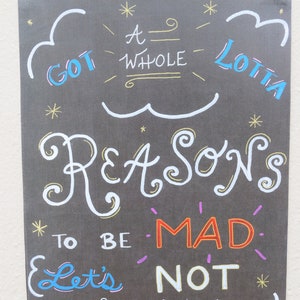 GOT A WHOLE LOTTA
REASONS
TO BE MAD
Let's NOT